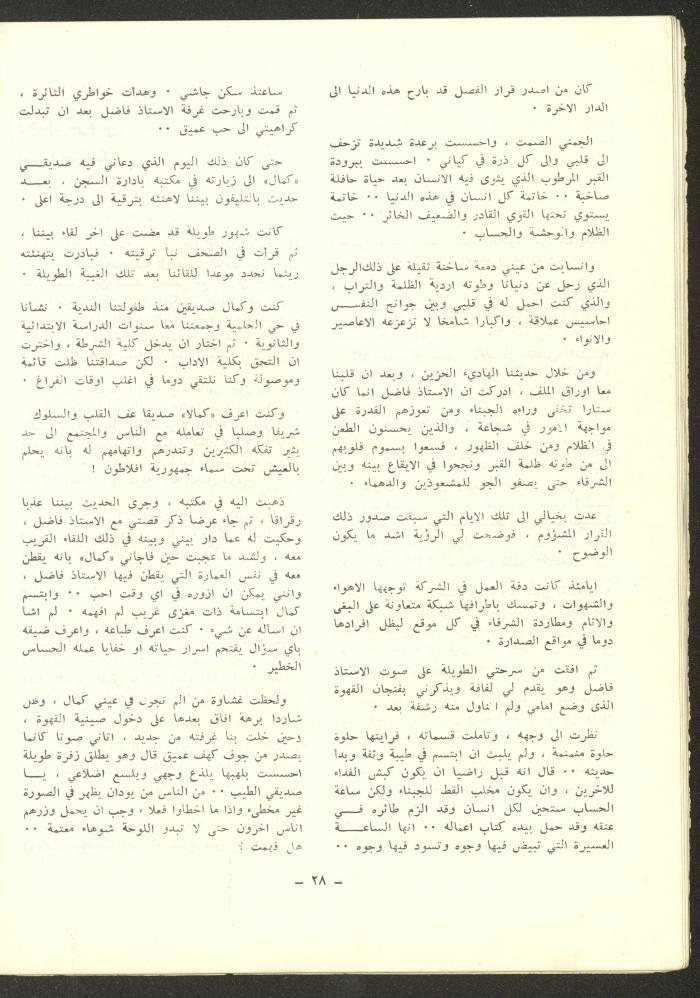 كان من اصدر قرار الفصل قد بارح هذه الدنيا الى
الدار الاخرة .
الجمني الصمت ، واحسست برعدة شديدة تزحف
الى قلبي والى كل ذرة في كياني . احسست ببرودة
القبر المرطوب الذي يثوى فيه الانسان بعد حياة حافلة
صاخبة .. خاتمة كل انسان في هذه الدنيا .. خاتمة
يستوي تحتها القوي القادر والضعيف الخائر .. حيث
الظلام والوحشة والحساب .
وانسابت من عيني دمعة ساخنة ثقيلة على ذلك الرجل
الذي رحل عن دنيانا وطوته اردية الظلمة والتراب ،
والذي كنت احمل له في قلبي وبين جوانح النفس
احاسيس عملاقة ، واكبارا شامخا لا تزعزعه الاعاصير
والانواء .
ومن خلال حديثنا الهاديء الحزين ، وبعد ان قلبنا
معا اوراق الملف ، ادركت ان الاستاذ فاضل انما كان
ستارا تخفى وراءه الجبناء ومن تعوزهم القدرة على
مواجهة الامور في شجاعة ، والذين يحسنون الطعن
في الظلام ومن خلف الظهور ، فسعوا بسموم قلوبهم
الى من طوته ظلمة القبر ونجحوا في الايقاع بينه وبين
الشرفاء حتى يصفو الجو للمشعوذين والدهماء .
عدت بخيالي الى تلك الايام التي سبقت صدور ذلك
القرار المشؤوم ، فوضحت لي الرؤية اشد ما يكون
الوضوح .
ايامئذ كانت دفة العمل في الشركة توجهها الاهواء
والشهوات ، وتمسك باطرافها شبكة متعاونة على البغى
والاثام ومطاردة الشرفاء في كل موقع ليظل افرادها
دوما في مواقع الصدارة .
ثم افقت من سرحتي الطويلة على صوت الاستاذ
فاضل وهو يقدم لي لفافة ويذكرني بفنجان القهوة
الذى وضع امامي ولم اتناول منه رشفة بعد .
نظرت الى وجهه ، وتاملت قسماته ، فرايتها حلوة
حلوة منمنمة ، ولم يلبث ان ابتسم في طيبة وثقة وبدأ
حديثه .. قال انه قبل راضيا ان يكون كبش الفداء
للاخرين ، وان يكون مخلب القط للجبناء ولكن ساعة
الحساب ستحين لكل انسان وقد الزم طائره في
عنقه وقد حمل بيده كتاب اعماله .. انها الساعة
العسيرة التي تبيض فيها وجوه وتسود فيها وجوه ..
ساعتذ سكن جاشي . وهدات خواطري الثائرة ،
ثم قمت وبارحت غرفة الاستاذ فاضل بعد ان تبدلت
كراهيتي الى حب عميق ..
حتى كان ذلك اليوم الذي دعاني فيه صديقي
«كمال» الى زيارته في مكتبه بادارة السجن ، بعد
حديث بالتليفون بيننا لاهنئه بترقية الى درجة اعلى .
كانت شهور طويلة قد مضت على اخر لقاء بيننا ،
ثم قرأت في الصحف نبا ترقيته . فبادرت بتهنئته
ريثما نحدد موعدا للقائنا بعد تلك الغيبة الطويلة .
كنت وكمال صديقين منذ طفولتنا الندية . نشأنا
في حي الحلمية وجمعتنا معا سنوات الدراسة الابتدائية
والثانوية . ثم اختار ان يدخل كلية الشرطة ، واخترت
ان التحق بكلية الاداب . لكن صداقتنا ظلت قائمة
وموصولة وكنا نلتقي دوما في اغلب اوقات الفراغ .
وكنت اعرف «كمالا» صديقا عف القلب والسلوك
شريفا وصلبا في تعامله مع الناس والمجتمع الى حد
يثير تفكه الكثيرين وتندرهم واتهامهم له بانه يحلم
بالعيش تحت سماء جمهورية افلاطون !
ذهبت اليه في مكتبه ، وجرى الحديث بيننا عذبا
رقراقا ، ثم جاء عرضا ذكر قصتي مع الاستاذ فاضل ،
وحكيت له عما دار بيني وبينه في ذلك اللقاء القريب
معه ، ولشد ما عجبت حين فاجاني «كمال» بانه يقطن
معه في نفس العمارة التي يقطن فيها الاستاذ فاضل ،
وانني يمكن ان ازوره في اي وقت احب .. وابتسم
كمال ابتسامة ذات مغزى غريب لم افهمه . لم اشا
ان اسأله عن شيء . كنت اعرف طباعه ، واعرف ضيقه
باي سؤال يقتحم اسرار حياته او خفايا عمله الحساس
الخطير .
ولحظت غشاوة من الم تجول في عيني كمال ، وظل
شاردا برهة افاق بعدها على دخول صينية القهوة ،
وحين خلت بنا غرفته من جديد ، اتاني صوتا كانما
يصدر من جوف كهف عميق قال وهو يطلق زفرة طويلة
احسست بلهبها يلذع وجهي ويلسع اضلاعي ، يا
صديقي الطيب .. من الناس من يودان يظهر في الصورة
غير مخطىء واذا ما اخطاوا فعلا ، وجب ان يحمل وزرهم
اناس اخرون حتى لا تبدو اللوحة شوهاء معتمة ..
هل فهمت ؟
- ٢٨ -